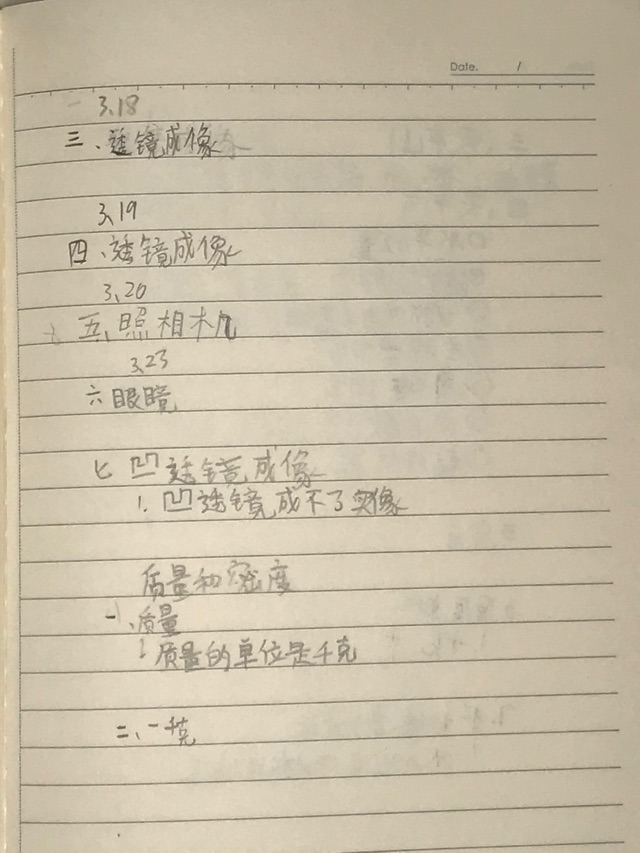 Date. /
3.18
三、透镜成像
3.19
四、透镜成像
3.20
五、照相机
3.23
六 眼睛
七 凹透镜成像
1. 凹透镜成不了实像
质量和密度
一、质量
1 质量的单位是千克
二、一千克